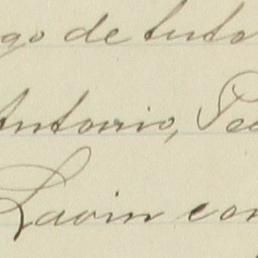 go de tuto
Antonio, Ped
Lavin con